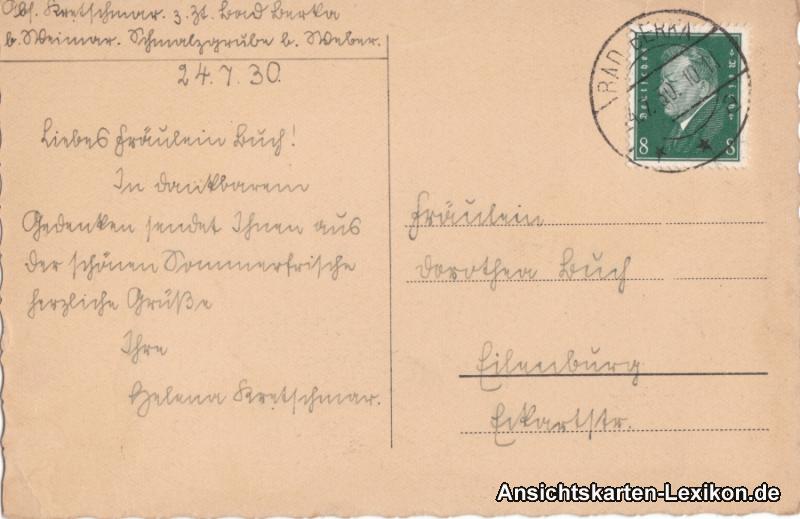 Abs. Kretschmar. z. Zt. Bad Berka
b. Weimar. Schmalzgrube b. Weber.
24.7.30.
Liebes Fräulein Buch!
In dankbarem
Gedenken sendet Ihnen aus
der schönen Sommerfrische
herzliche Grüße
Ihre
Helena Kretschmar.
BAD BERKA
Deutsches Reich
8 8
Fräulein
Dorothea Buch
Eilenburg
Eckartstr.
Ansichtskarten-Lexikon.de